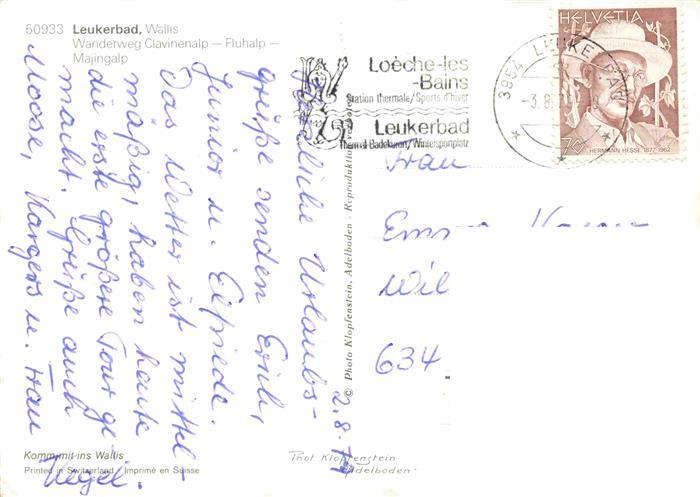 50933 Leukerbad, Wallis
Wanderweg Clavinenalp – Fluhalp –
Majingalp
Loèche-les
-Bains
Station thermale/Sports d'hiver
Leukerbad
Thermal-Badekuren/Wintersportplatz
3954 LEUKERBAD
-3.8.
HELVETIA
70
HERMANN HESSE 1877-1962
Urlaubs-
grüße senden Erich,
Junior u. Elfriede.
Das Wetter ist mittel-
mäßig, haben heute
die erste größere Tour ge-
macht. Grüße auch
Moose, Kargers u. Frau
Hegel.
2.8.79
Frau
Emma
Wil
634
© Photo Klopfenstein, Adelboden - Reproduktion
Phot. Klopfenstein
Adelboden
Komm mit ins Wallis
Printed in Switzerland / Imprimé en Suisse